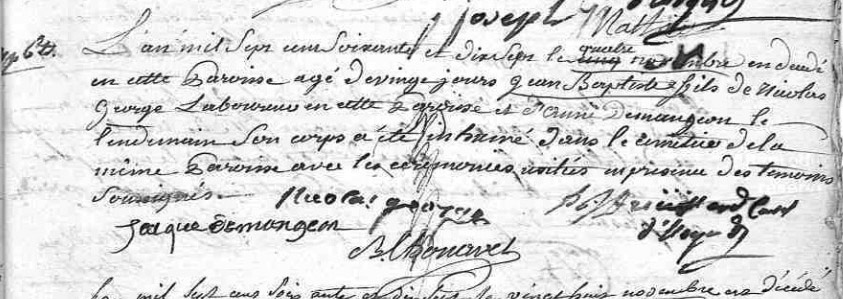 Joseph Mathieu
L'an mil sept cent soixante et dix sept le quatre novembre est decedé
en cette Paroisse agé de vingt jours Jean Baptiste fils de Nicolas
George Laboureur en cette Paroisse et d'anne Demangeon le
lendemain son corps a été inhumé dans le cimetier de la
même Paroisse avec les ceremonies usitées en presence des temoins
soussignés
Nicolas george
Jacque demangeon
L'an mil sept cens soixante et dix sept le vingt huit novembre est décédé